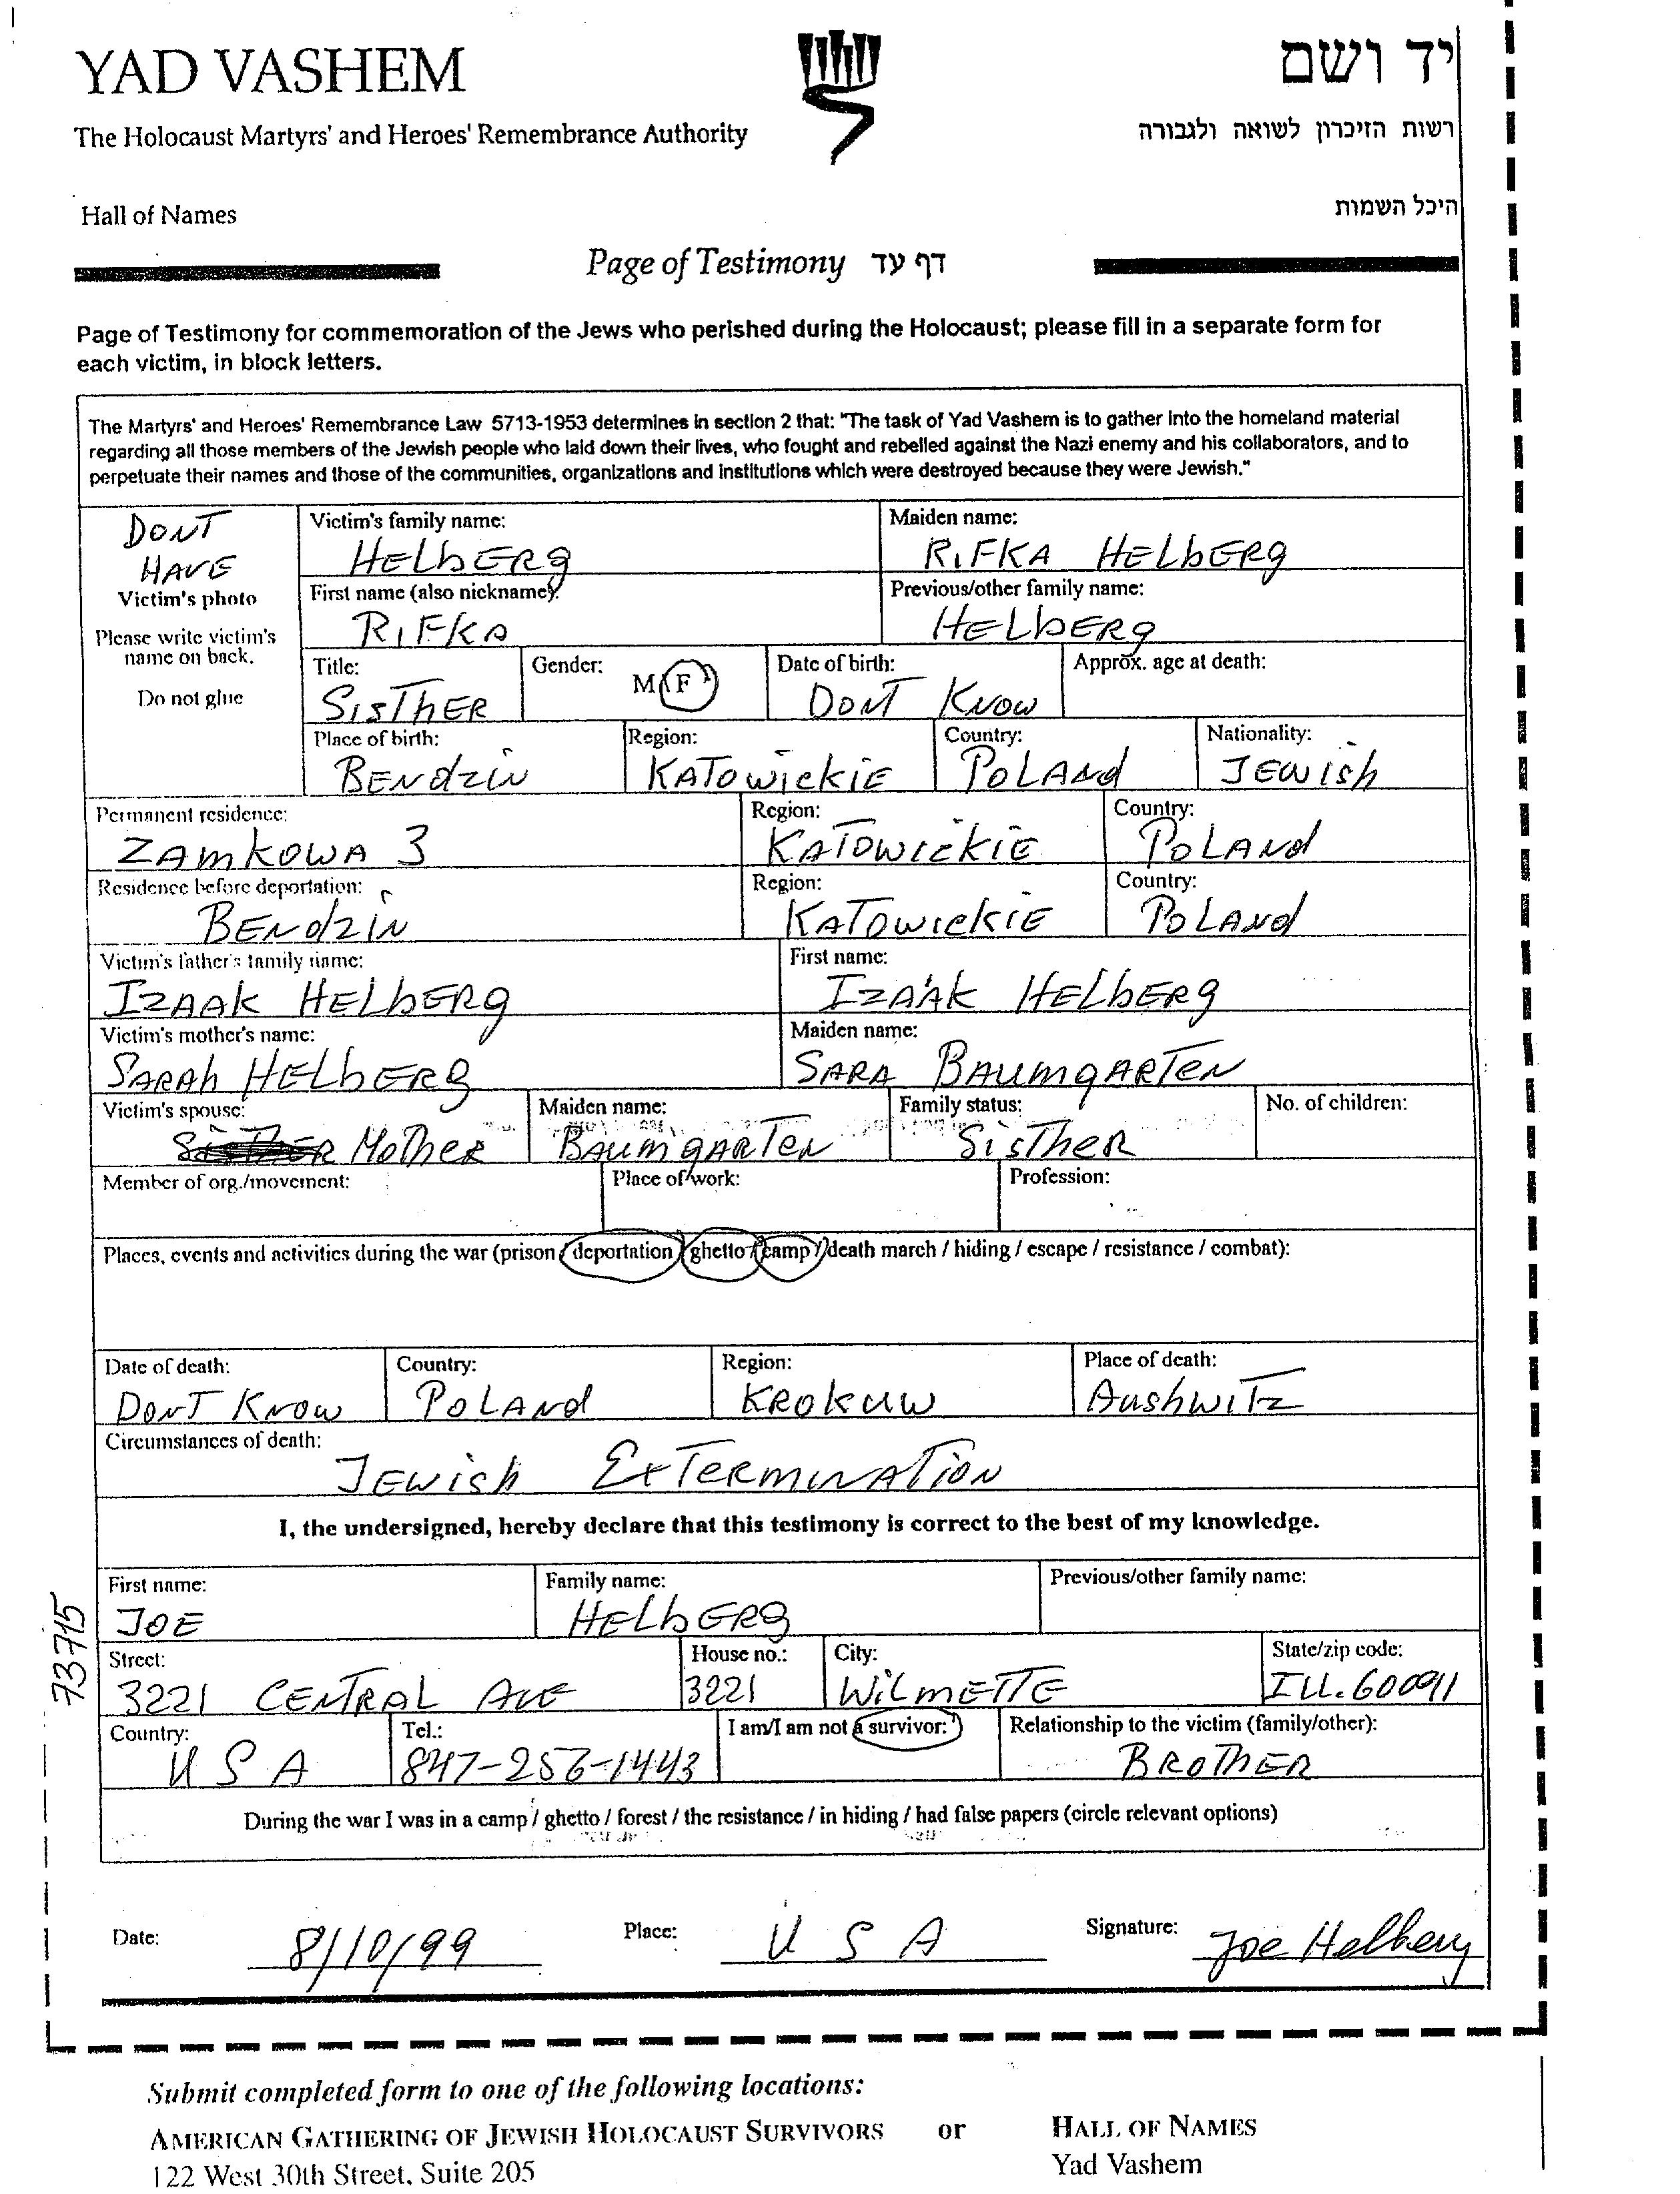 YAD VASHEM
יד ושם
The Holocaust Martyrs' and Heroes' Remembrance Authority
רשות הזיכרון לשואה ולגבורה
Hall of Names
היכל השמות
Page of Testimony דף עד
Page of Testimony for commemoration of the Jews who perished during the Holocaust; please fill in a separate form for
each victim, in block letters.
The Martyrs' and Heroes' Remembrance Law 5713-1953 determines in section 2 that: "The task of Yad Vashem is to gather into the homeland material
regarding all those members of the Jewish people who laid down their lives, who fought and rebelled against the Nazi enemy and his collaborators, and to
perpetuate their names and those of the communities, organizations and institutions which were destroyed because they were Jewish."
DONT
HAVE
Victim's photo
Please write victim's
name on back.
Do not glue
Victim's family name: Maiden name:
HELbERg RiFKA HELbERg
First name (also nickname): Previous/other family name:
RiFKA HELbERg
Title: Gender: M / F Date of birth: Approx. age at death:
SisThER DONT KNOW
Place of birth: Region: Country: Nationality:
BENdziN KATOWickiE POLANd JEWish
Permanent residence: Region: Country:
ZAMKOWA 3 KATOWickiE POLANd
Residence before deportation: Region: Country:
BENdziN KATOWickiE POLANd
Victim's father's family name: First name:
IZAAK HELbERg IZAAK HELbERg
Victim's mother's name: Maiden name:
SARAh HELbERg SARA BAUMgARTEN
Victim's spouse: Maiden name: Family status: No. of children:
MOTHER BAUMgARTEN SisTheR
Member of org./movement: Place of work: Profession:
Places, events and activities during the war (prison / deportation / ghetto / camp / death march / hiding / escape / resistance / combat):
Date of death: Country: Region: Place of death:
DONT KNOW POLANd KROKUW AushwiTz
Circumstances of death:
JEWish EXTERMINATiON
I, the undersigned, hereby declare that this testimony is correct to the best of my knowledge.
First name: Family name: Previous/other family name:
JOE HELbERg
Street: House no.: City: State/zip code:
3221 CENTRAL AVE 3221 WiLMETTE ILL. 60091
Country: Tel.: I am/I am not a survivor: Relationship to the victim (family/other):
U S A 847-256-1443 BROTHER
During the war I was in a camp / ghetto / forest / the resistance / in hiding / had false papers (circle relevant options)
73715
Date: 8/10/99 Place: U S A Signature: Joe Helberg
Submit completed form to one of the following locations:
AMERICAN GATHERING OF JEWISH HOLOCAUST SURVIVORS or HALL OF NAMES
122 West 30th Street, Suite 205 Yad Vashem